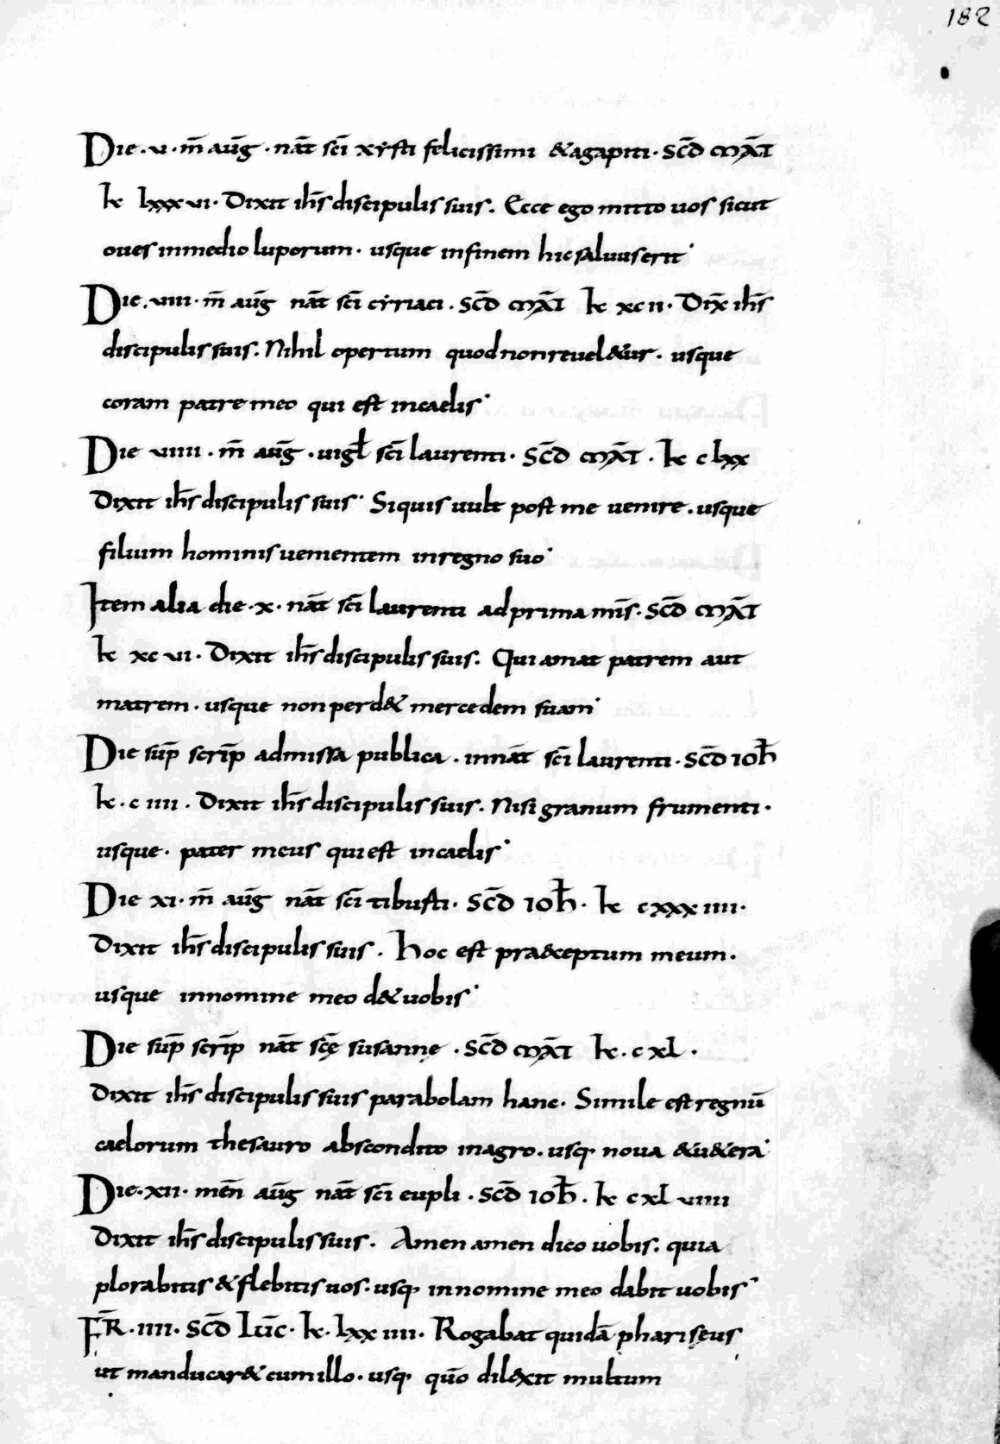 182
Die · vi · m̄ aug̅ · nat̅ sc̅i xysti felicissimi & agapiti · sc̅d mat̅
k̅ lxxxvi · Dixit ih̅s discipulis suis. Ecce ego mitto uos sicut
oues inmedio luporum · usque infinem hic saluus erit
Die · viii · m̄ aug̅ nat̅ sc̅i cyriaci · sc̅d mat̅ k̅ xcii · Dix̅ ih̅s
discipulis suis. Nihil opertum quod non reuel&ur · usque
coram patre meo qui est incaelis
Die viiii · m̄ aug̅ · uigl̅ sc̅i laurenti · sc̅d mat̅ · k̅ clxx
Dixit ih̅s discipulis suis Siquis uult post me uenire · usque
filium hominis uenientem inregno suo
Item alia die · x · nat̅ sc̅i laurenti ad prima mis̅ · sc̅d mat̅
k̅ xcvi · Dixit ih̅s discipulis suis. Qui amat patrem aut
matrem · usque non perd& mercedem suam
Die sup̅ scrip̅ admissa publica · innat̅ sc̅i laurenti · sc̅d ioh̅
k̅ · ciiii · Dixit ih̅s discipulis suis. Nisi granum frumenti ·
usque · pater meus qui est incaelis
Die xi · m̄ aug̅ nat̅ sc̅i tiburti · sc̅d ioh̅ · k̅ cxxxiiii ·
Dixit ih̅s discipulis suis · Hoc est praeceptum meum ·
usque innomine meo d& uobis
Die sup̅ scrip̅ nat̅ sc̅ę susannę · sc̅d mat̅ k̅ · cxl ·
Dixit ih̅s discipulis suis parabolam hanc · Simile est regnu̅
caelorum thesauro abscondito inagro · usq · noua & u&era
Die · xii · men̅ aug̅ nat̅ sc̅i eupli · sc̅d ioh̅ · k̅ cxlviiii
Dixit ih̅s discipulis suis. Amen amen dico uobis. quia
plorabitis & flebitis uos · usq · innomine meo dabit uobis
FR̅ · iiii · sc̅d luc̅ · k̅ · lxxiiii · Rogabat quida̅ phariseus
ut manducar& cum illo · usq · quo̅ dilexit multum